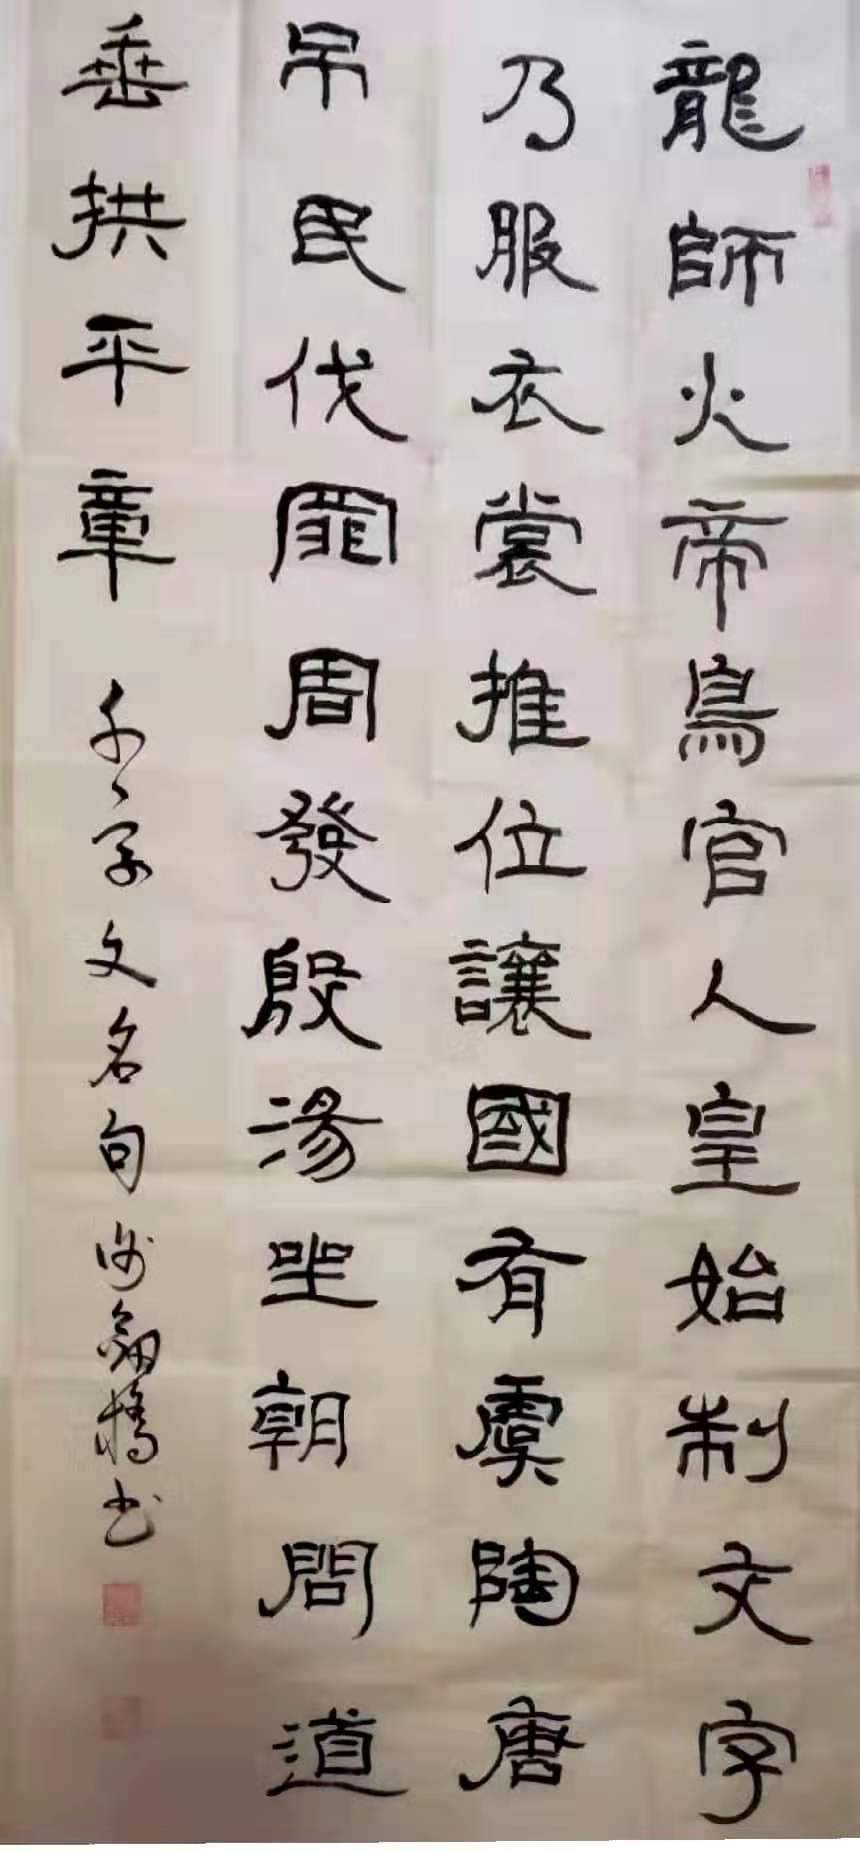 龍師火帝鳥官人皇始制文字
乃服衣裳推位讓國有虞陶唐
吊民伐罪周發殷湯坐朝問道
垂拱平章 千字文名句 書